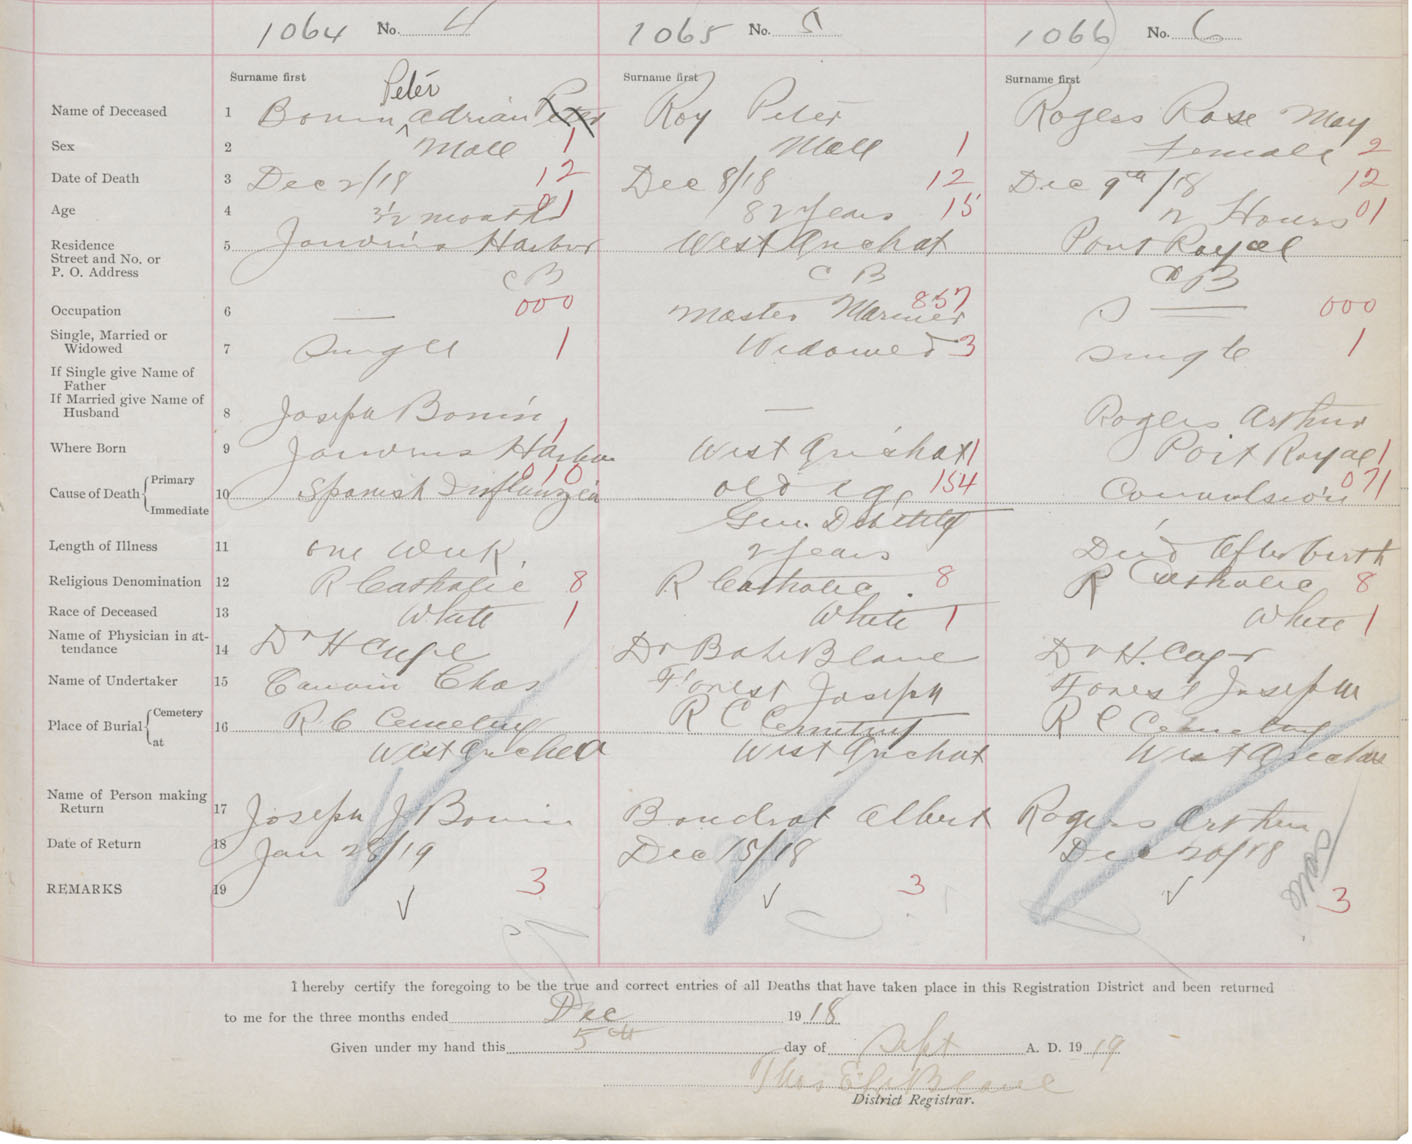 1064 No. 4 1065 No. 5 1066 No. 6
Surname first Surname first Surname first
Peter
Name of Deceased 1 Bonin ^ Adrian Peter Roy Peter Rogers Rose May
Sex 2 Male 1 Male 1 Female 2
Date of Death 3 Dec 2/18 12 Dec 8/18 12 Dec 9th/18 12
Age 4 3½ months 01 82 years 15 2 Hours 01
Residence
Street and No. or
P. O. Address
5 Janvrins Harbor West Arichat Port Royal
C B C B C B
Occupation 6 — 000 Master Mariner 857 S — 000
Single, Married or
Widowed 7 Single 1 Widowed 3 Single 1
If Single give Name of
Father
If Married give Name of
Husband 8 Joseph Bonin — Rogers Arthur
Where Born 9 Janvrins Harbor 1 West Arichat 1 Port Royal 1
Cause of Death { Primary
Immediate
10 Spanish Influenzea 010 old age 154 Convulsion 071
Gen. Debility
Length of Illness 11 one week 2 years Died after birth
Religious Denomination 12 R Catholic 8 R Catholic 8 R Catholic 8
Race of Deceased 13 White 1 White 1 White 1
Name of Physician in at-
tendance 14 Dr H Dr LeBlanc Dr H.
Name of Undertaker 15 Chas Forest Joseph Forest Joseph
Place of Burial { Cemetery
at
16 R C Cemetery R C Cemetery R C Cemetery
West Arichat West Arichat West Arichat
Name of Person making
Return 17 Joseph J Bonin Boudrot Albert Rogers Arthur
Date of Return 18 Jan 28/19 Dec 15/18 Dec 20/18
REMARKS 19 3 3 3
I hereby certify the foregoing to be the true and correct entries of all Deaths that have taken place in this Registration District and been returned
to me for the three months ended Dec 1918
Given under my hand this 5th day of Sept A. D. 1919
Thos LeBlanc
District Registrar.